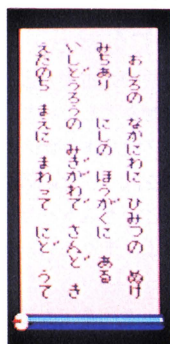 おしろの　なかにわに　ひみつの　ぬけ
みちあり　にしの　ほうがくに　ある
いしどうろうの　みぎがわで　さんど　き
えたのち　まえに　まわって　にど　うて